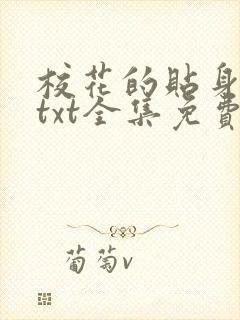 校花的貼身
txt全集免費
葡萄v